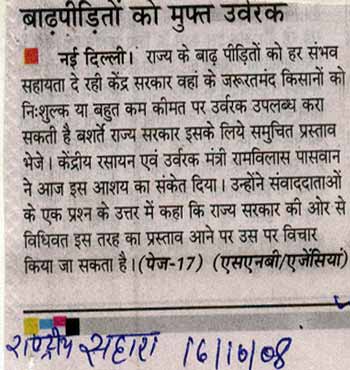 बाढ़पीड़ितों को मुफ्त उर्वरक
नई दिल्ली। राज्य के बाढ़ पीड़ितों को हर संभव
सहायता दे रही केंद्र सरकार वहां के जरूरतमंद किसानों को
निःशुल्क या बहुत कम कीमत पर उर्वरक उपलब्ध करा
सकती है बशर्ते राज्य सरकार इसके लिये समुचित प्रस्ताव
भेजे। केंद्रीय रसायन एवं उर्वरक मंत्री रामविलास पासवान
ने आज इस आशय का संकेत दिया। उन्होंने संवाददाताओं
के एक प्रश्न के उत्तर में कहा कि राज्य सरकार की ओर से
विधिवत इस तरह का प्रस्ताव आने पर उस पर विचार
किया जा सकता है। (पेज-17) (एसएनबी/एजेंसियां)
राष्ट्रीय सहारा 16/10/08